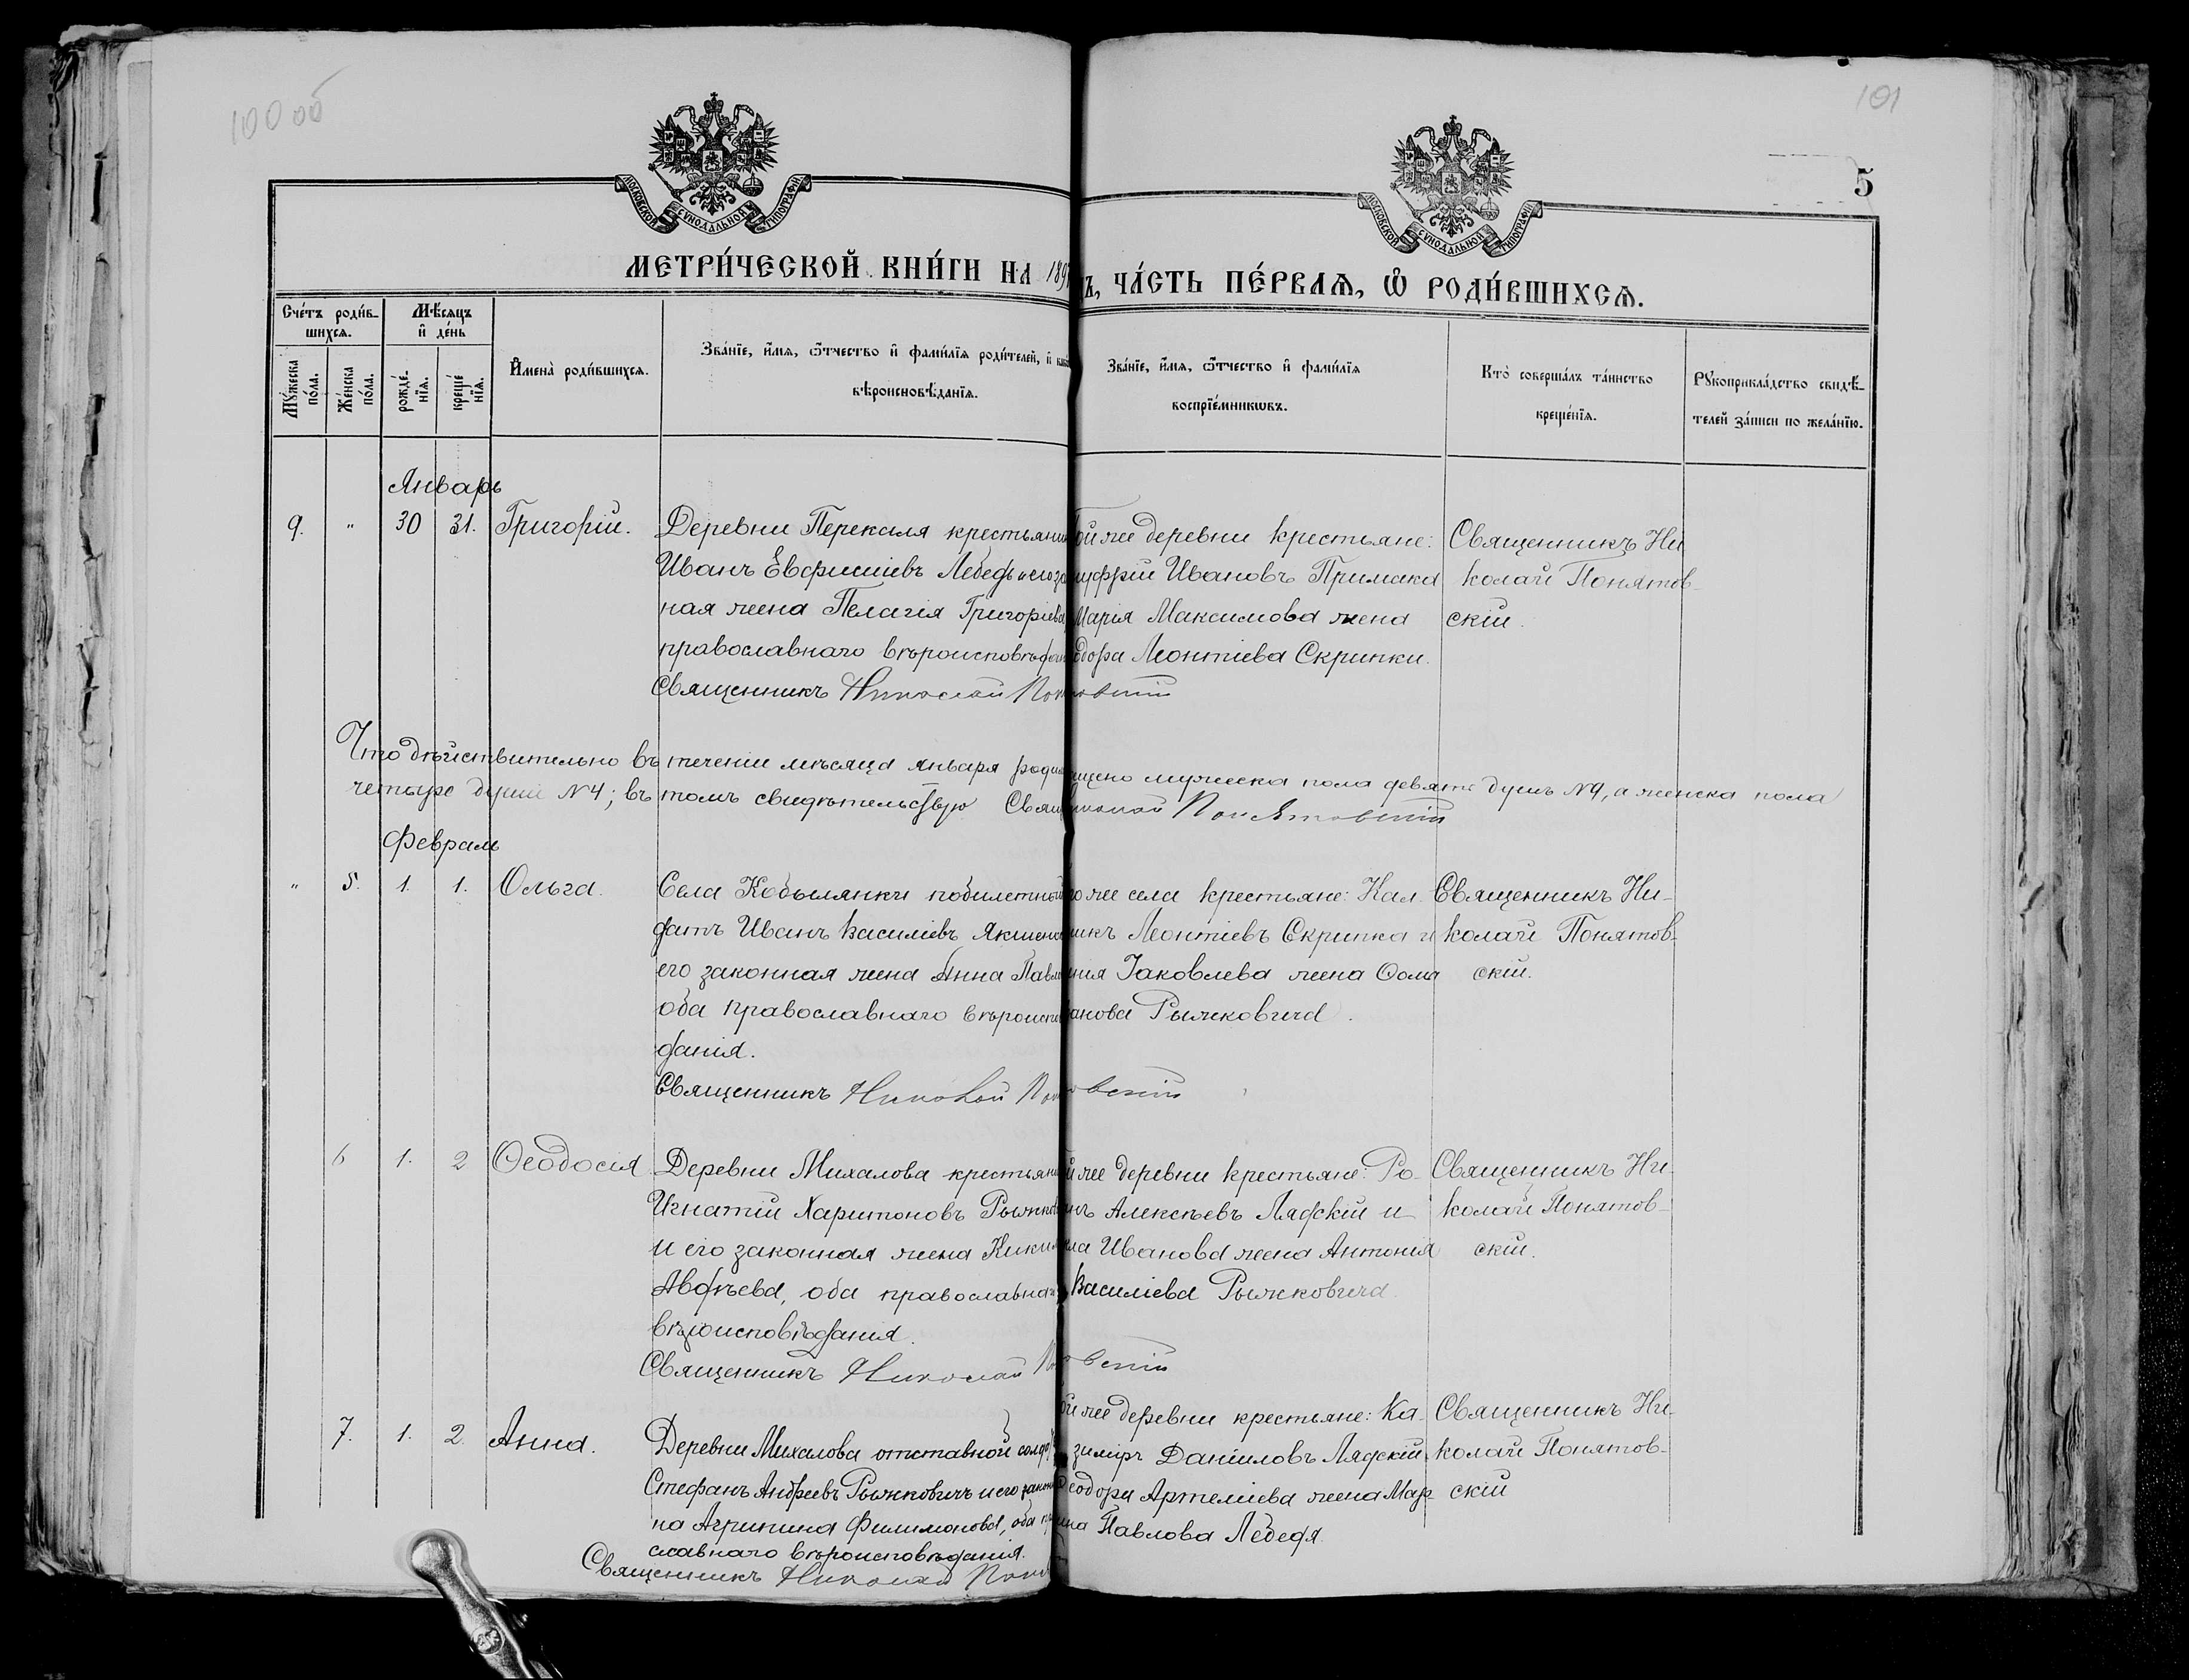 100 об
101
5
МОСКОВСКОЙ СѴНОДАЛЬНОЙ ТИПОГРАФІИ
МОСКОВСКОЙ СѴНОДАЛЬНОЙ ТИПОГРАФІИ
МЕТРИ́ЧЕСКОЙ КНИ́ГИ НА 189
Ъ, ЧА́СТЬ ПЕ́РВАѦ, Ѡ҆ РОДИ́ВШИХСѦ.
Сче́тъ роди́в-
шихсѧ.
Мѣ́сѧцъ
и҆ де́нь
Мꙋ́жеска
по́ла.
Же́нска
по́ла.
рожде́-
нїѧ.
креще́
нїѧ.
И҆мена̀ роди́вшихсѧ.
Зва́нїе, и҆́мѧ, ѻ҆́тчество и҆ фами́лїѧ роди́телей, и҆
вѣроисповѣ́данїѧ.
Зва́нїе, и҆́мѧ, ѻ҆́тчество и҆ фами́лїѧ
воспрїе́мникѡвъ.
Кто̀ соверша́лъ та́инство
креще́нїѧ.
Рꙋкоприкла́дство свидѣ́-
телей за́писи по жела́нїю.
Январь
9. " 30 31. Григорій. Деревни Перекаля крестьянин
Иванъ Евфиміевъ Лебедь и его за
ная жена Пелагія Григоріева,
православнаго вѣроисповѣдан
Священникъ Николай Пон
ой же деревни крестьяне:
уфрій Ивановъ Примака
Марія Максимова жена
одора Леонтіева Скрипки.
овскій
Священникъ Ни
колай Понятов-
скій.
Что дѣйствительно въ теченіи мѣсяца января роди щено мужеска пола девять душъ №9, а женска пола
четыре души №4; въ томъ свидѣтельствую Свящ николай Понятовскій
Февраль
" 5. 1. 1. Ольга. Села Кобылянки побилетный
датъ Иванъ Василіевъ Якимен
его законная жена Анна Павло
оба православнаго вѣроиспо
данія.
Священникъ Николай Пон
го же села крестьяне: Кал-
никъ Леонтіевъ Скрипка и
енія Іаковлева жена Ѳомы
анова Рыжковича.
вскій
Священникъ Ни-
колай Понятов-
скій.
6 1. 2 Ѳеодосія Деревни Михалова крестьяни
Игнатій Харитоновъ Рыжков
и его законная жена Кикил
Авдѣева, оба православнаг
вѣроисповѣданія.
Священникъ Николай По
й же деревни крестьяне: Ро-
анъ Алексѣевъ Лядскій и
ла Иванова жена Антонія
Василіева Рыжковича.
вскій
Священникъ Ни-
колай Понятов-
скій.
7. 1. 2. Анна. Деревни Михалова отставной солда
Стефанъ Андреевъ Рыжковичъ и его закон
на Агрипина Филимонова, оба пра
славнаго вѣроисповѣданія.
Священникъ Николай Поня
ой же деревни крестьяне: Ка-
зиміръ Даніиловъ Лядскій
Ѳеодора Артеміева жена Мар-
ина Павлова Лебедя.
Священникъ Ни-
колай Понятов-
скій